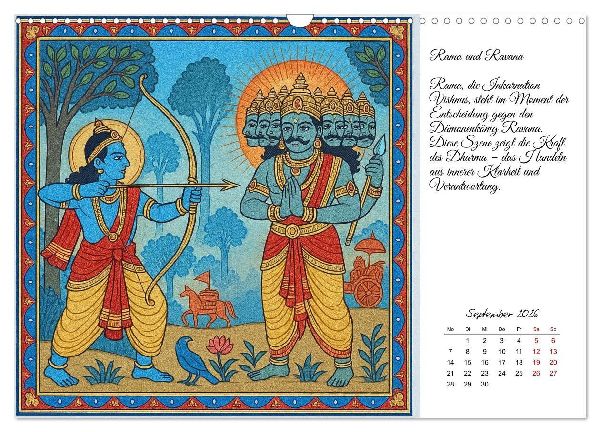 Rama und Ravana
Rama, die Inkarnation
Vishnus, steht im Moment der
Entscheidung gegen den
Dämonenkönig Ravana.
Diese Szene zeigt die Kraft
des Dharma – das Handeln
aus innerer Klarheit und
Verantwortung.
September 2026
Mo Di Mi Do Fr Sa So
1 2 3 4 5 6
7 8 9 10 11 12 13
14 15 16 17 18 19 20
21 22 23 24 25 26 27
28 29 30